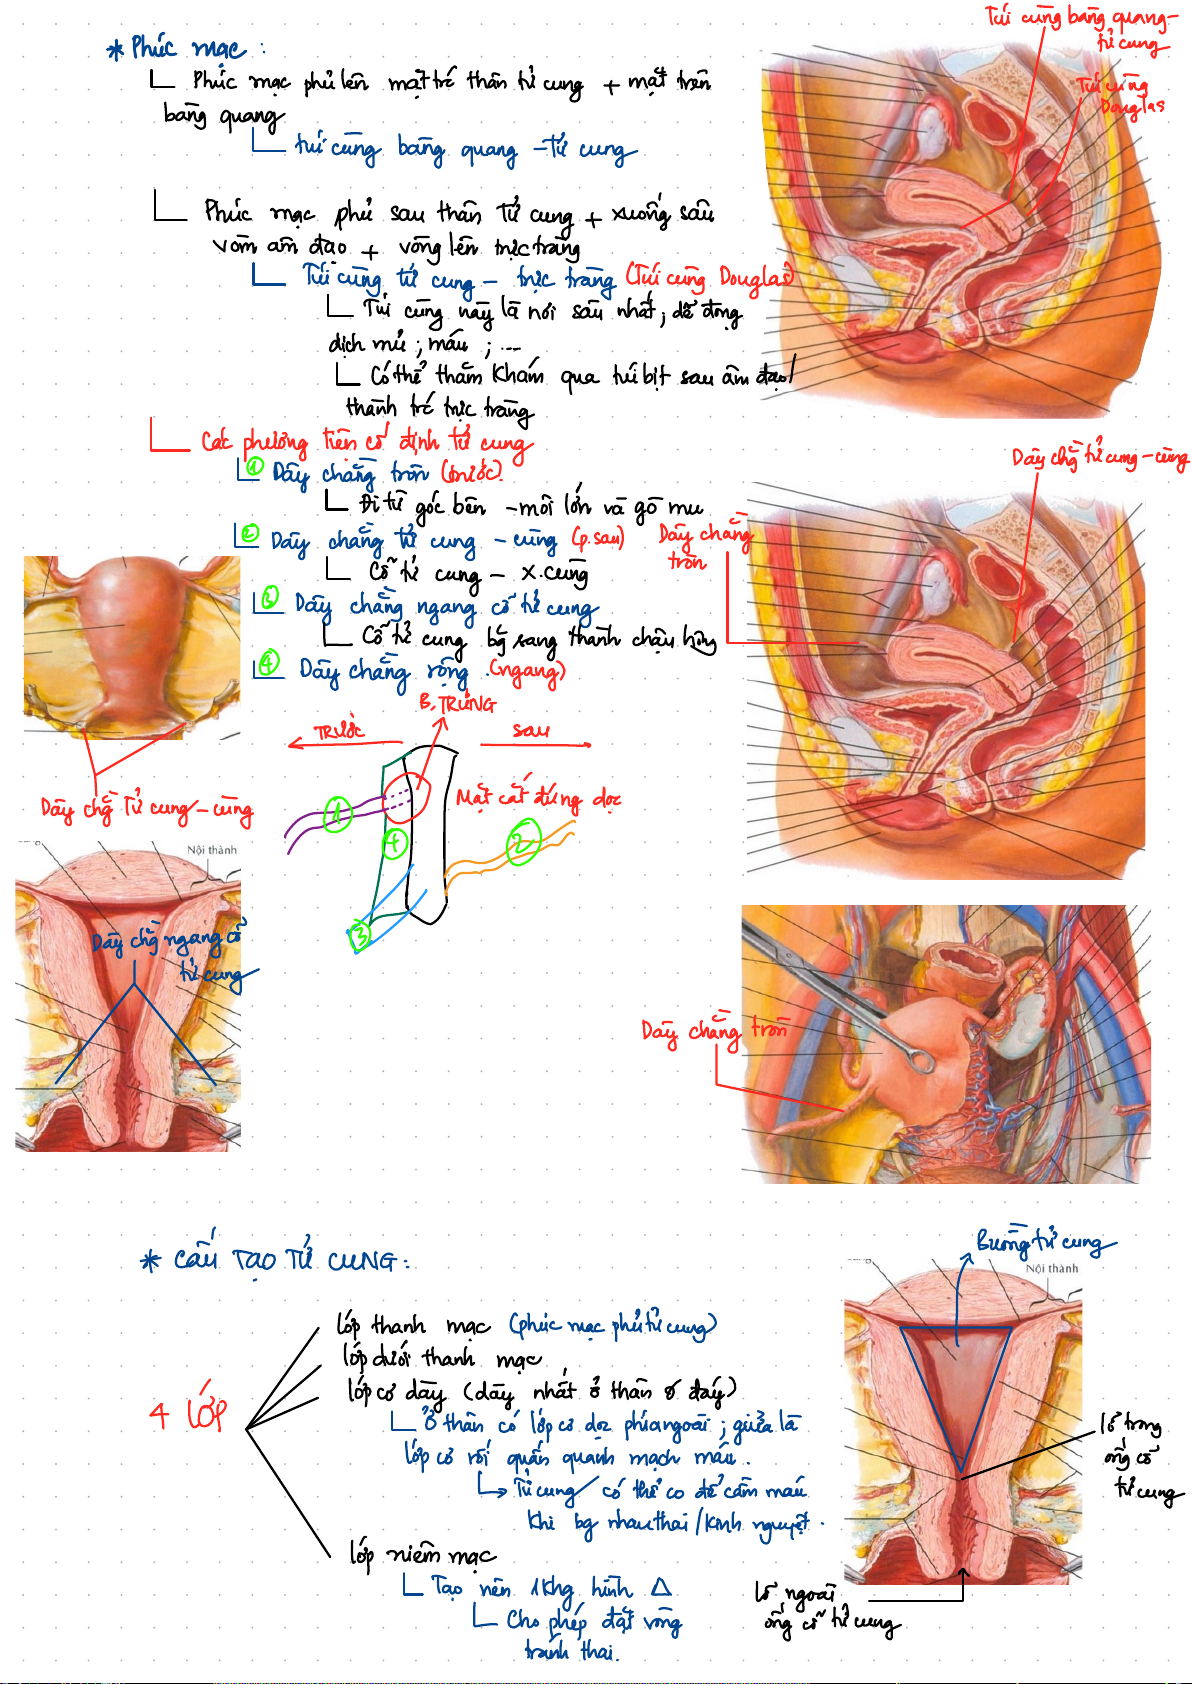 * Phúc mạc :
Phúc mạc phủ lên mặt trc thân tử cung + mặt trên
bàng quang
túi cùng bàng quang - Tử cung
Phúc mạc phủ sau thân Tử cung + xuống sâu
vòm âm đạo + vòng lên trực tràng
Túi cùng tử cung - trực tràng (Túi cùng Douglas)
Túi cùng này là nơi sâu nhất, dễ đọng
dịch mủ ; máu ; ...
Có thể thăm khám qua túi bịt sau âm đạo/
thành trc trực tràng
Các phương tiện cố định tử cung
① Dây chằng tròn (trước).
Đi từ góc bên - môi lớn và gò mu
② Dây chằng tử cung - cùng (p.sau)
Cổ tử cung - x.cùng
③ Dây chằng ngang cổ tử cung
Cổ tử cung bg sang thành chậu hông
④ Dây chằng rộng (ngang)
Túi cùng bàng quang-
tử cung
Túi cùng
Douglas
Dây chg tử cung-cùng
Dây chằng
tròn
B.TRỨNG
TRƯỚC
sau
Mặt cắt đứng dọc
1
4
2
3
Dây chg Tử cung-cùng
Nội thành
Dây chg ngang cổ
tử cung
Dây chằng tròn
* CẤU TẠO TỬ CUNG :
4 LỚP
lớp thanh mạc (phúc mạc phủ tử cung)
lớp dưới thanh mạc
lớp cơ dày (dày nhất ở thân & đáy)
ở thân có lớp cơ dọc phía ngoài ; giữa là
lớp cơ rối quấn quanh mạch máu.
→ Tử cung có thể co để cầm máu
khi bg nhau thai / kinh nguyệt.
lớp niêm mạc
Tạo nên 1 khg hình Δ
Cho phép đặt vòng
tránh thai.
Buồng tử cung
Nội thành
lỗ trong
ống cổ
tử cung
lỗ ngoài
ống cổ tử cung